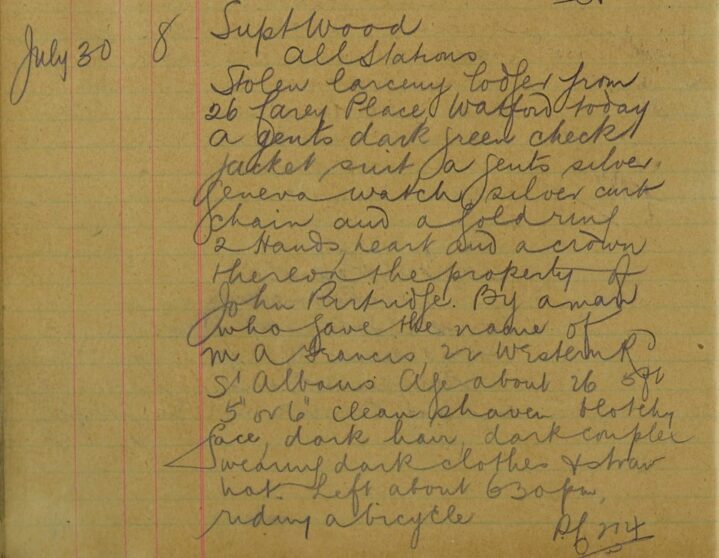 July 30 8 Supt Wood
All Stations
Stolen larceny lodger from
26 Farey Place Watford today
a gents dark green check
jacket suit, a gents silver
geneva watch, silver curb
chain and a gold ring
2 Hands, heart and a crown
thereon the property of
John Partridge. By a man
who gave the name of
M A Francis, 22 Western Rd
St Albans Age about 26 5ft
5" or 6" clean shaven blotchy
face, dark hair, dark complex
wearing dark clothes & straw
hat. Left about 6 30 pm,
riding a bicycle
274